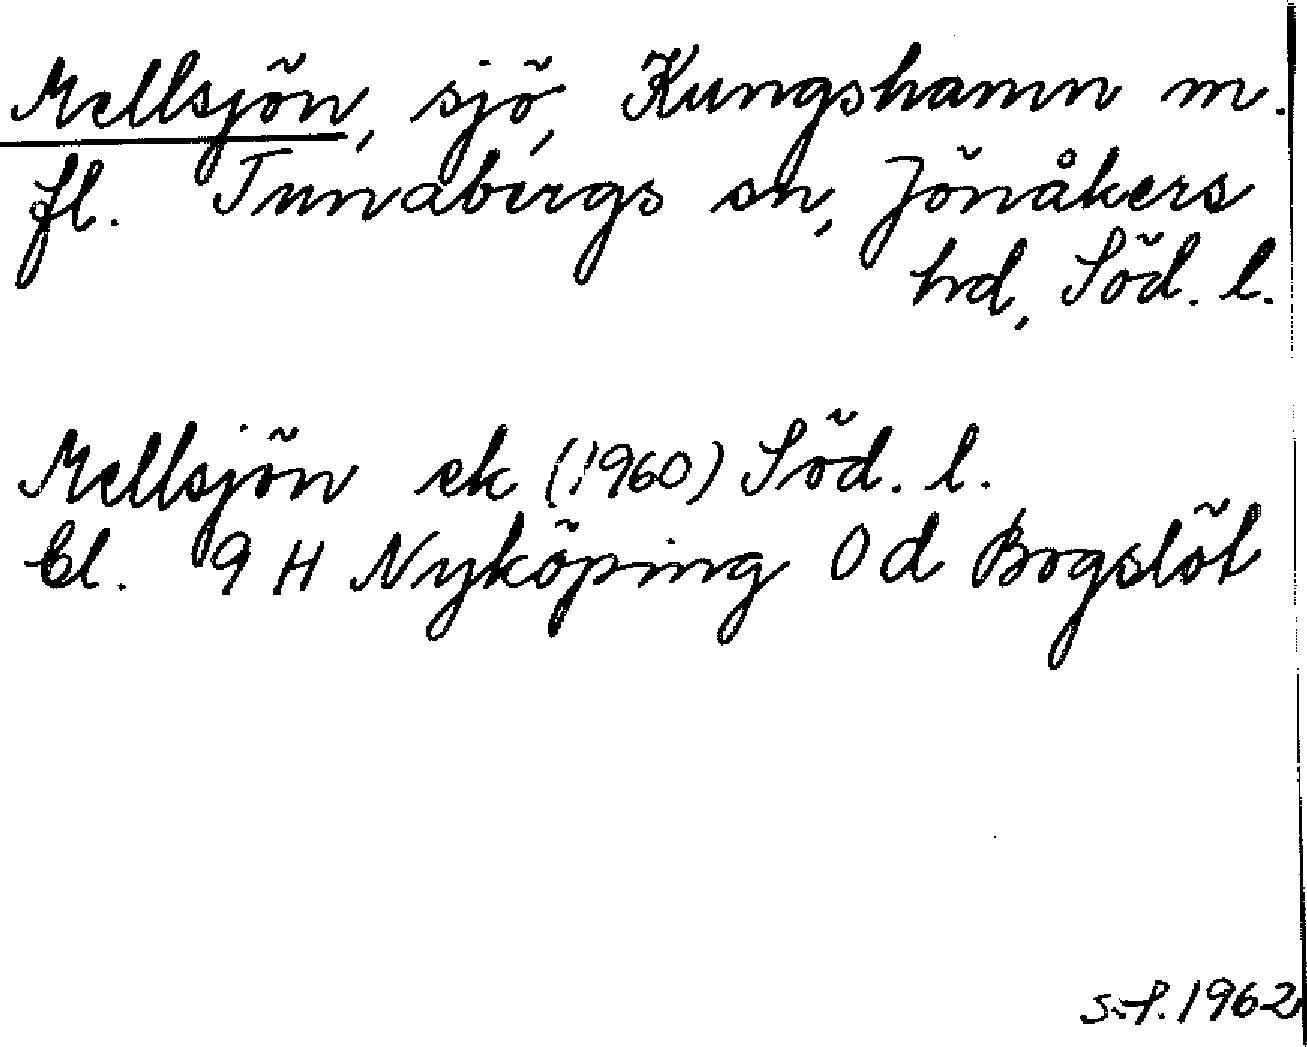 Mellsjön, sjö, Kungshamn m.
fl. Tunabergs sn, Jönåkers
hd, Söd. l.
Mellsjön ek (1960) Söd. l.
bl. 9 H Nyköping 0 d Bogslöt
1962